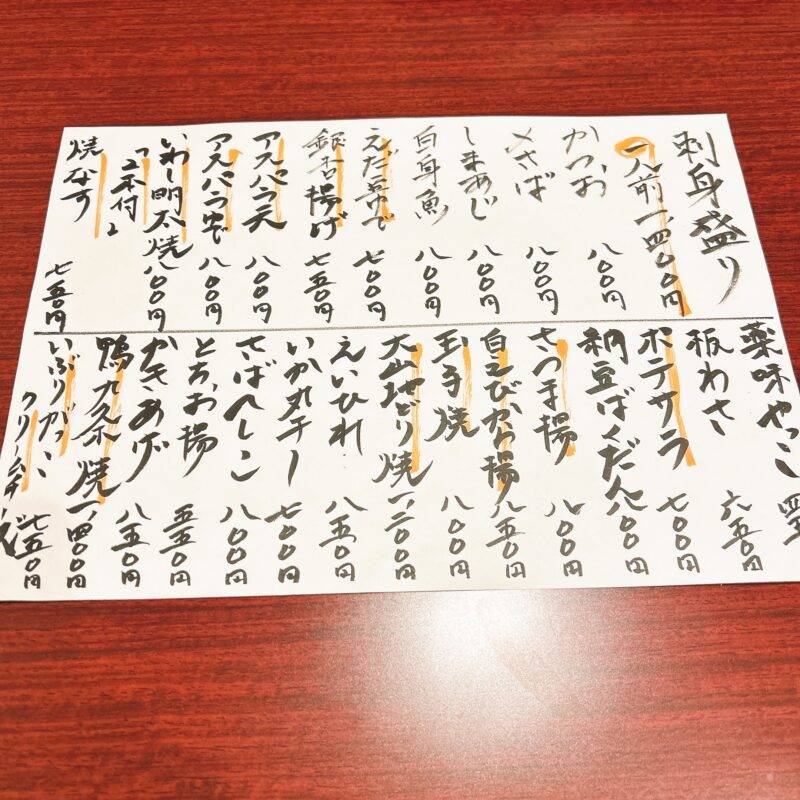 刺身盛り
一人前 一、四〇〇円
かつお 八〇〇円
〆さば 八〇〇円
しまあじ 八〇〇円
白身魚 八〇〇円
えだ豆ゆで 七〇〇円
銀杏揚げ 七五〇円
アスパラ天 八〇〇円
アスパラゆで 八〇〇円
いわし明太焼 八〇〇円
「2本付」
焼なす 七五〇円
薬味やっこ
板わさ 六五〇円
ポテサラ 七〇〇円
納豆ばくだん 八〇〇円
さつま揚 八〇〇円
白えびから揚 八五〇円
玉子焼 八〇〇円
大山地どり焼 一、二〇〇円
えいひれ 八五〇円
いか丸干し 七〇〇円
さばへしこ 八〇〇円
とちお揚 五五〇円
かきあげ 八五〇円
鴨九条焼 一、四〇〇円
いぶりがっこ
クリームチーズ 七五〇円